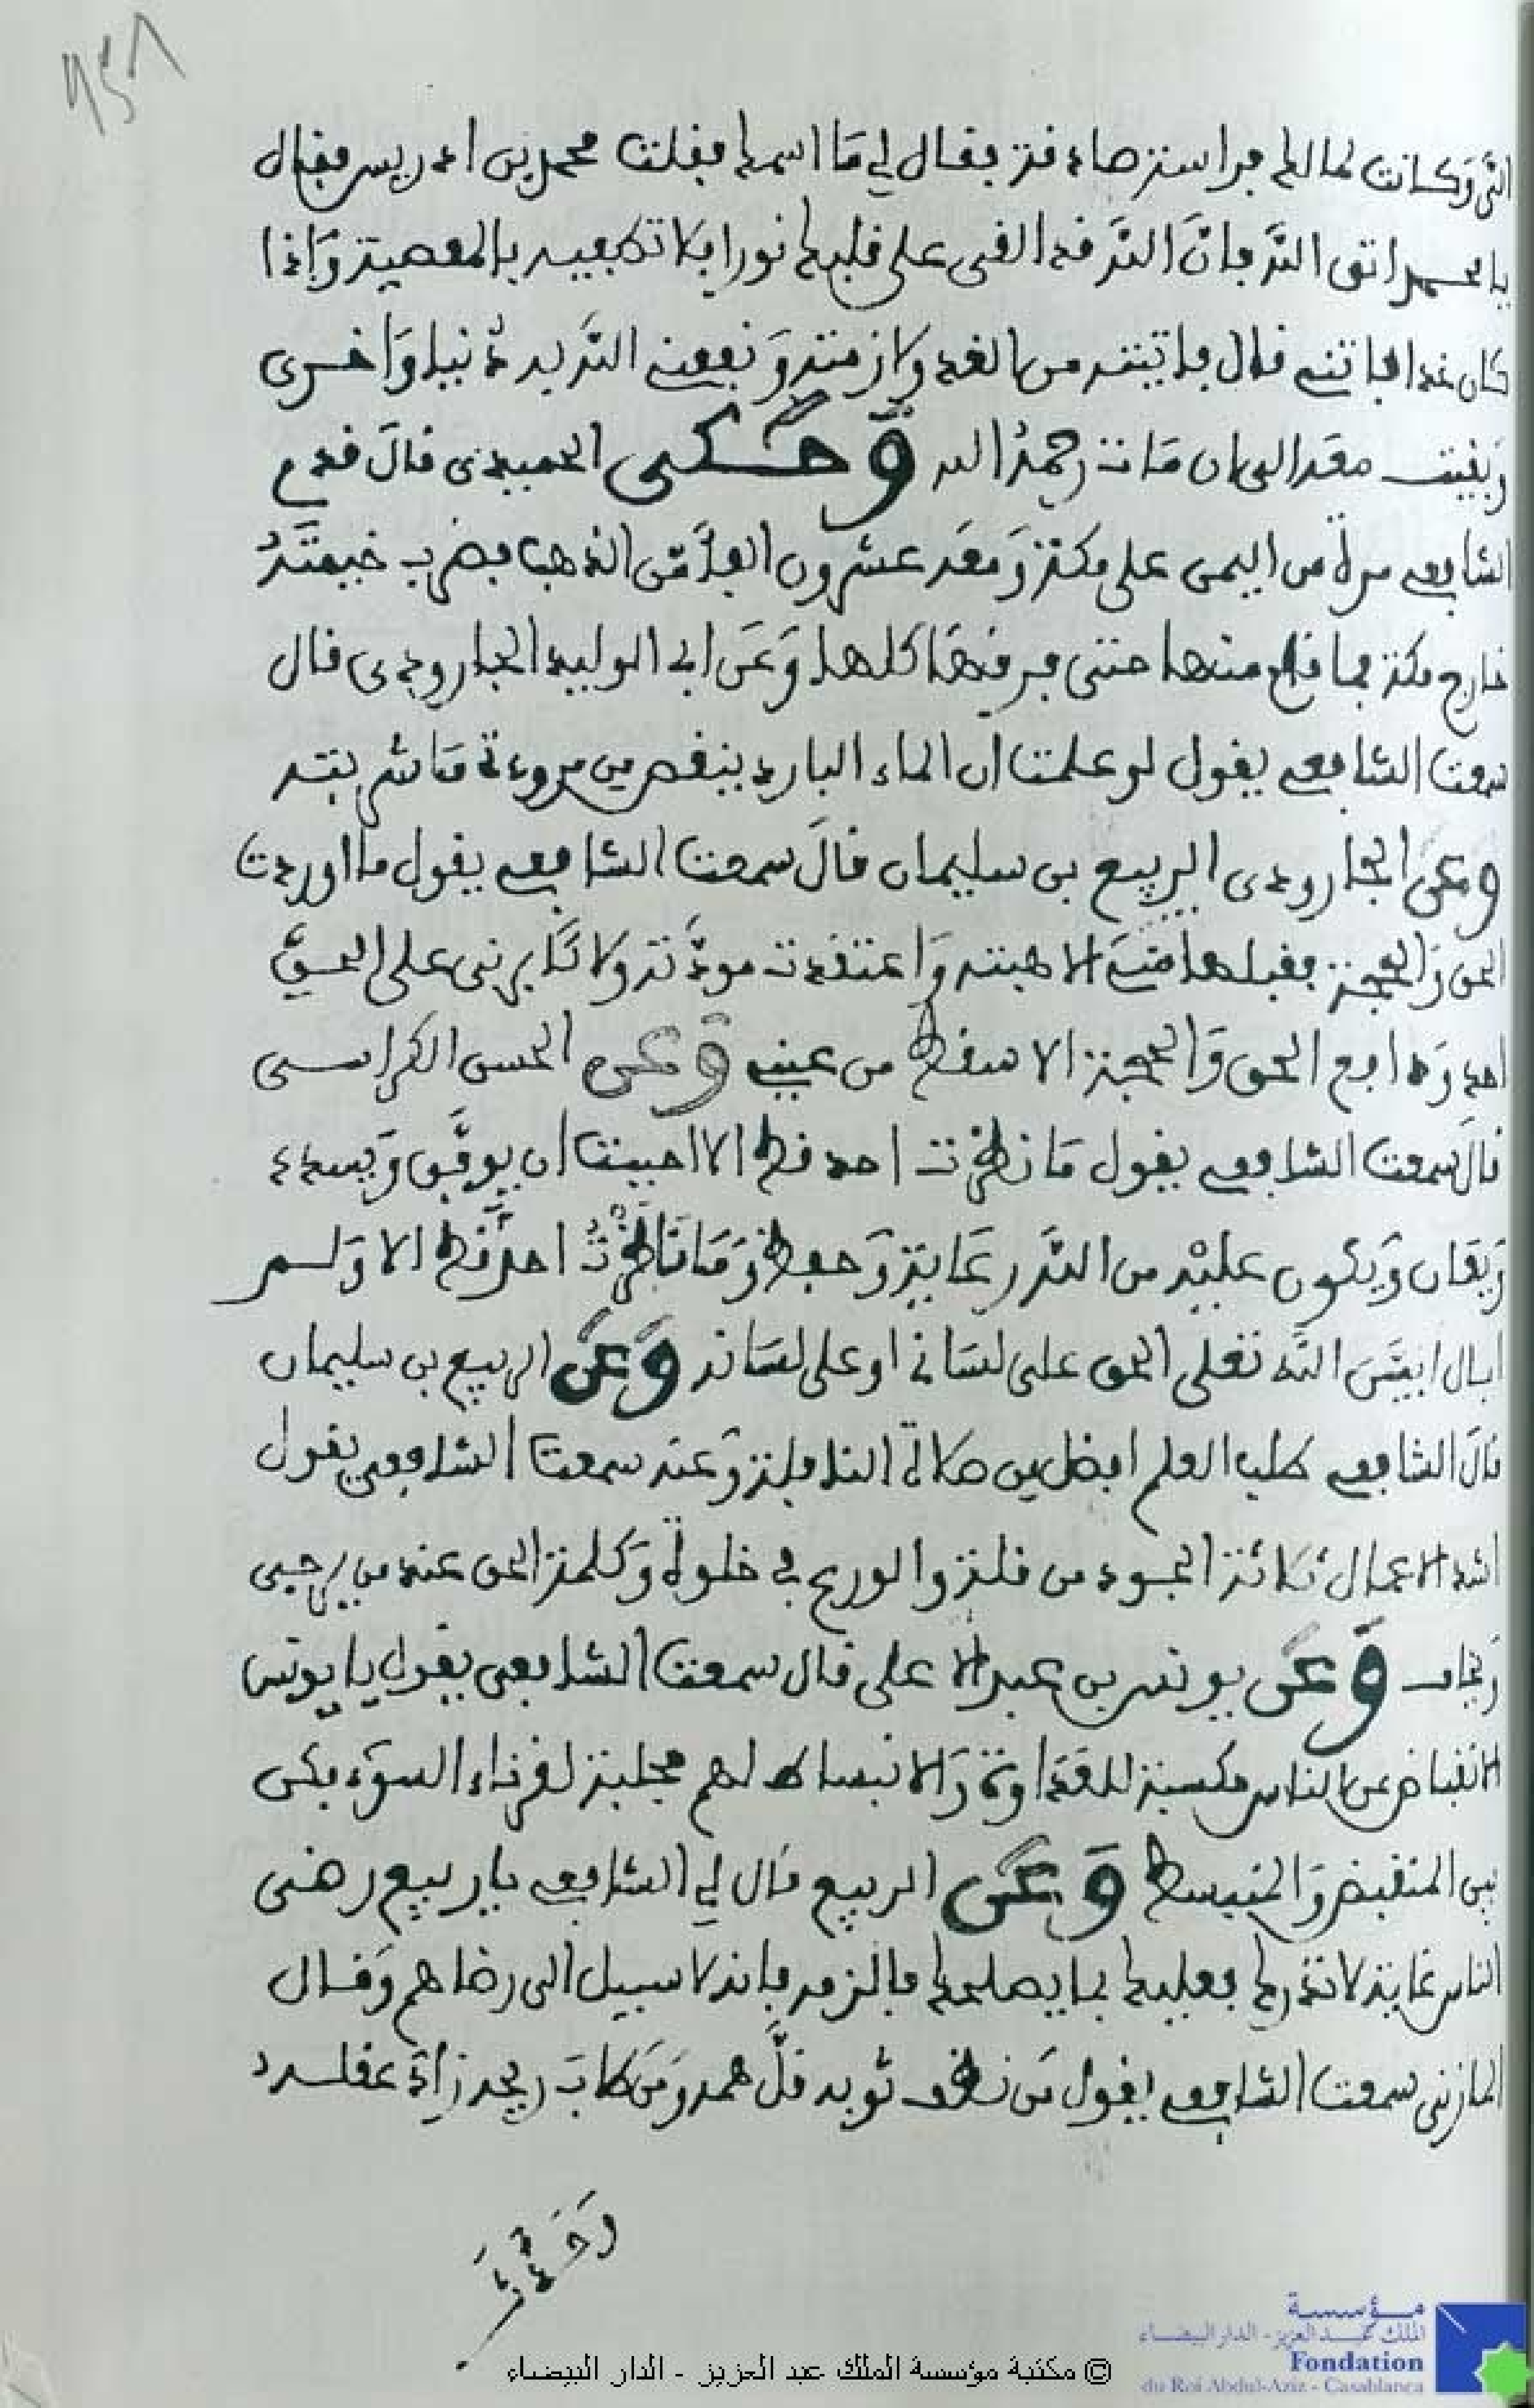 التي وكانت لمالك فراسة صادقة فقال لي ما اسمك فقلت محمد بن ادريس فقال
يا محمد اتق الله فان الله قد القى على قلبك نورا فلا تطفيه بالمعصية وإذا
كان غدا فاتني قال فاتيته من الغد ولازمته ونفعني الله به دنيا وأخرى
وبقيت معه الى ان مات رحمه الله وحكى الحميدي قال قدم
الشافعي مرة من اليمن على مكة ومعه عشرون الفا من الذهب فضرب خيمته
خارج مكة فما قام منها حتى فرقها كلها وعن ابي الوليد الجارودي قال
سمعت الشافعي يقول لو علمت ان الماء البارد ينقص من مروءتي ما شربته
وعن الجارودي الربيع بن سليمان قال سمعت الشافعي يقول ما اوردت
الحق والحجة فقبلها مني الا هبته واعتقدت مودته ولا كابرني على الحق
احد ودافع الحق والحجة الا سقط من عيني وعن الحسن الكرابسي
قال سمعت الشافعي يقول ما ناظرت احد قط الا احببت ان يوفق ويسدد
ويعان ويكون عليه من الله رعاية وحفظ وما ناظرت احدا قط الا ولم
ابال ابين الله تعلى الحق على لساني او على لسانه وعن الربيع بن سليمان
قال الشافعي طلب العلم افضل من صلاة النافلة وعنه سمعت الشافعي يقول
اشد الاعمال ثلاثة الجود من قلة والورع في خلوة وكلمة الحق عند من يرجى
ويخاف وعن يونس بن عبد الاعلى قال سمعت الشافعي يقول يا يونس
الانقباض عن الناس مكسبة للعداوة والانبساط لهم مجلبة لقرناء السوء فكن
بين المنقبض والمنبسط وعن الربيع قال لي الشافعي يا ربيع رضى
الناس غاية لا تدرك فعليك بما يصلحك فالزمه فانه لا سبيل الى رضاهم وقال
المازني سمعت الشافعي يقول من نظف ثوبه قل همه ومن طاب ريحه زاد عقله
مؤسسة
الملك عبد العزيز - الدار البيضاء
Fondation
du Roi Abdul-Aziz - Casablanca
© مكتبة مؤسسة الملك عبد العزيز - الدار البيضاء